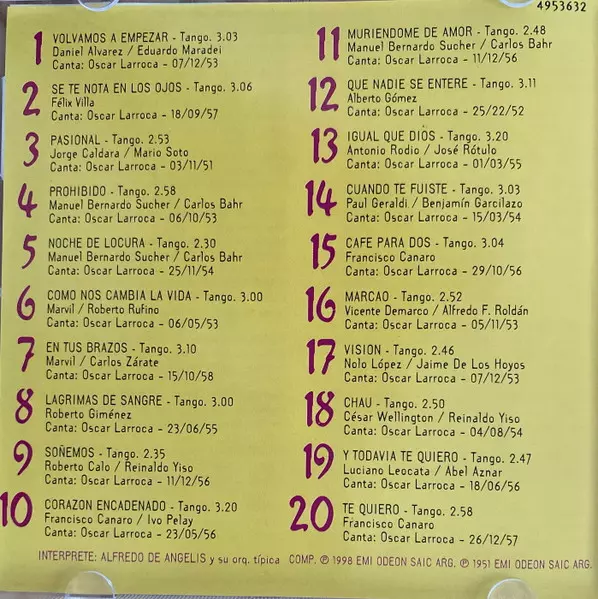 4953632
1 VOLVAMOS A EMPEZAR - Tango. 3.03
Daniel Alvarez / Eduardo Maradei
Canta: Oscar Larroca - 07/12/53
2 SE TE NOTA EN LOS OJOS - Tango. 3.06
Félix Villa
Canta: Oscar Larroca - 18/09/57
3 PASIONAL - Tango. 2.53
Jorge Caldara / Mario Soto
Canta: Oscar Larroca - 03/11/51
4 PROHIBIDO - Tango. 2.58
Manuel Bernardo Sucher / Carlos Bahr
Canta: Oscar Larroca - 06/10/53
5 NOCHE DE LOCURA - Tango. 2.30
Manuel Bernardo Sucher / Carlos Bahr
Canta: Oscar Larroca - 25/11/54
6 COMO NOS CAMBIA LA VIDA - Tango. 3.00
Marvil / Roberto Rufino
Canta: Oscar Larroca - 06/05/53
7 EN TUS BRAZOS - Tango. 3.10
Marvil / Carlos Zárate
Canta: Oscar Larroca - 15/10/58
8 LAGRIMAS DE SANGRE - Tango. 3.00
Roberto Giménez
Canta: Oscar Larroca - 23/06/55
9 SOÑEMOS - Tango. 2.35
Roberto Calo / Reinaldo Yiso
Canta: Oscar Larroca - 11/12/56
10 CORAZON ENCADENADO - Tango. 3.20
Francisco Canaro / Ivo Pelay
Canta: Oscar Larroca - 23/05/56
11 MURIENDOME DE AMOR - Tango. 2.48
Manuel Bernardo Sucher / Carlos Bahr
Canta: Oscar Larroca - 11/12/56
12 QUE NADIE SE ENTERE - Tango. 3.11
Alberto Gómez
Canta: Oscar Larroca - 25/22/52
13 IGUAL QUE DIOS - Tango. 3.20
Antonio Rodio / José Rótulo
Canta: Oscar Larroca - 01/03/55
14 CUANDO TE FUISTE - Tango. 3.03
Paul Geraldi / Benjamín Garcilazo
Canta: Oscar Larroca - 15/03/54
15 CAFE PARA DOS - Tango. 3.04
Francisco Canaro
Canta: Oscar Larroca - 29/10/56
16 MARCAO - Tango. 2.52
Vicente Demarco / Alfredo F. Roldán
Canta: Oscar Larroca - 05/11/53
17 VISION - Tango. 2.46
Nolo López / Jaime De Los Hoyos
Canta: Oscar Larroca - 07/12/53
18 CHAU - Tango. 2.50
César Wellington / Reinaldo Yiso
Canta: Oscar Larroca - 04/08/54
19 Y TODAVIA TE QUIERO - Tango. 2.47
Luciano Leocata / Abel Aznar
Canta: Oscar Larroca - 18/06/56
20 TE QUIERO - Tango. 2.58
Francisco Canaro
Canta: Oscar Larroca - 26/12/57
INTERPRETE: ALFREDO DE ANGELIS y su orq. típica COMP. ℗ 1998 EMI ODEON SAIC ARG. ℗ 1951 EMI ODEON SAIC ARG.